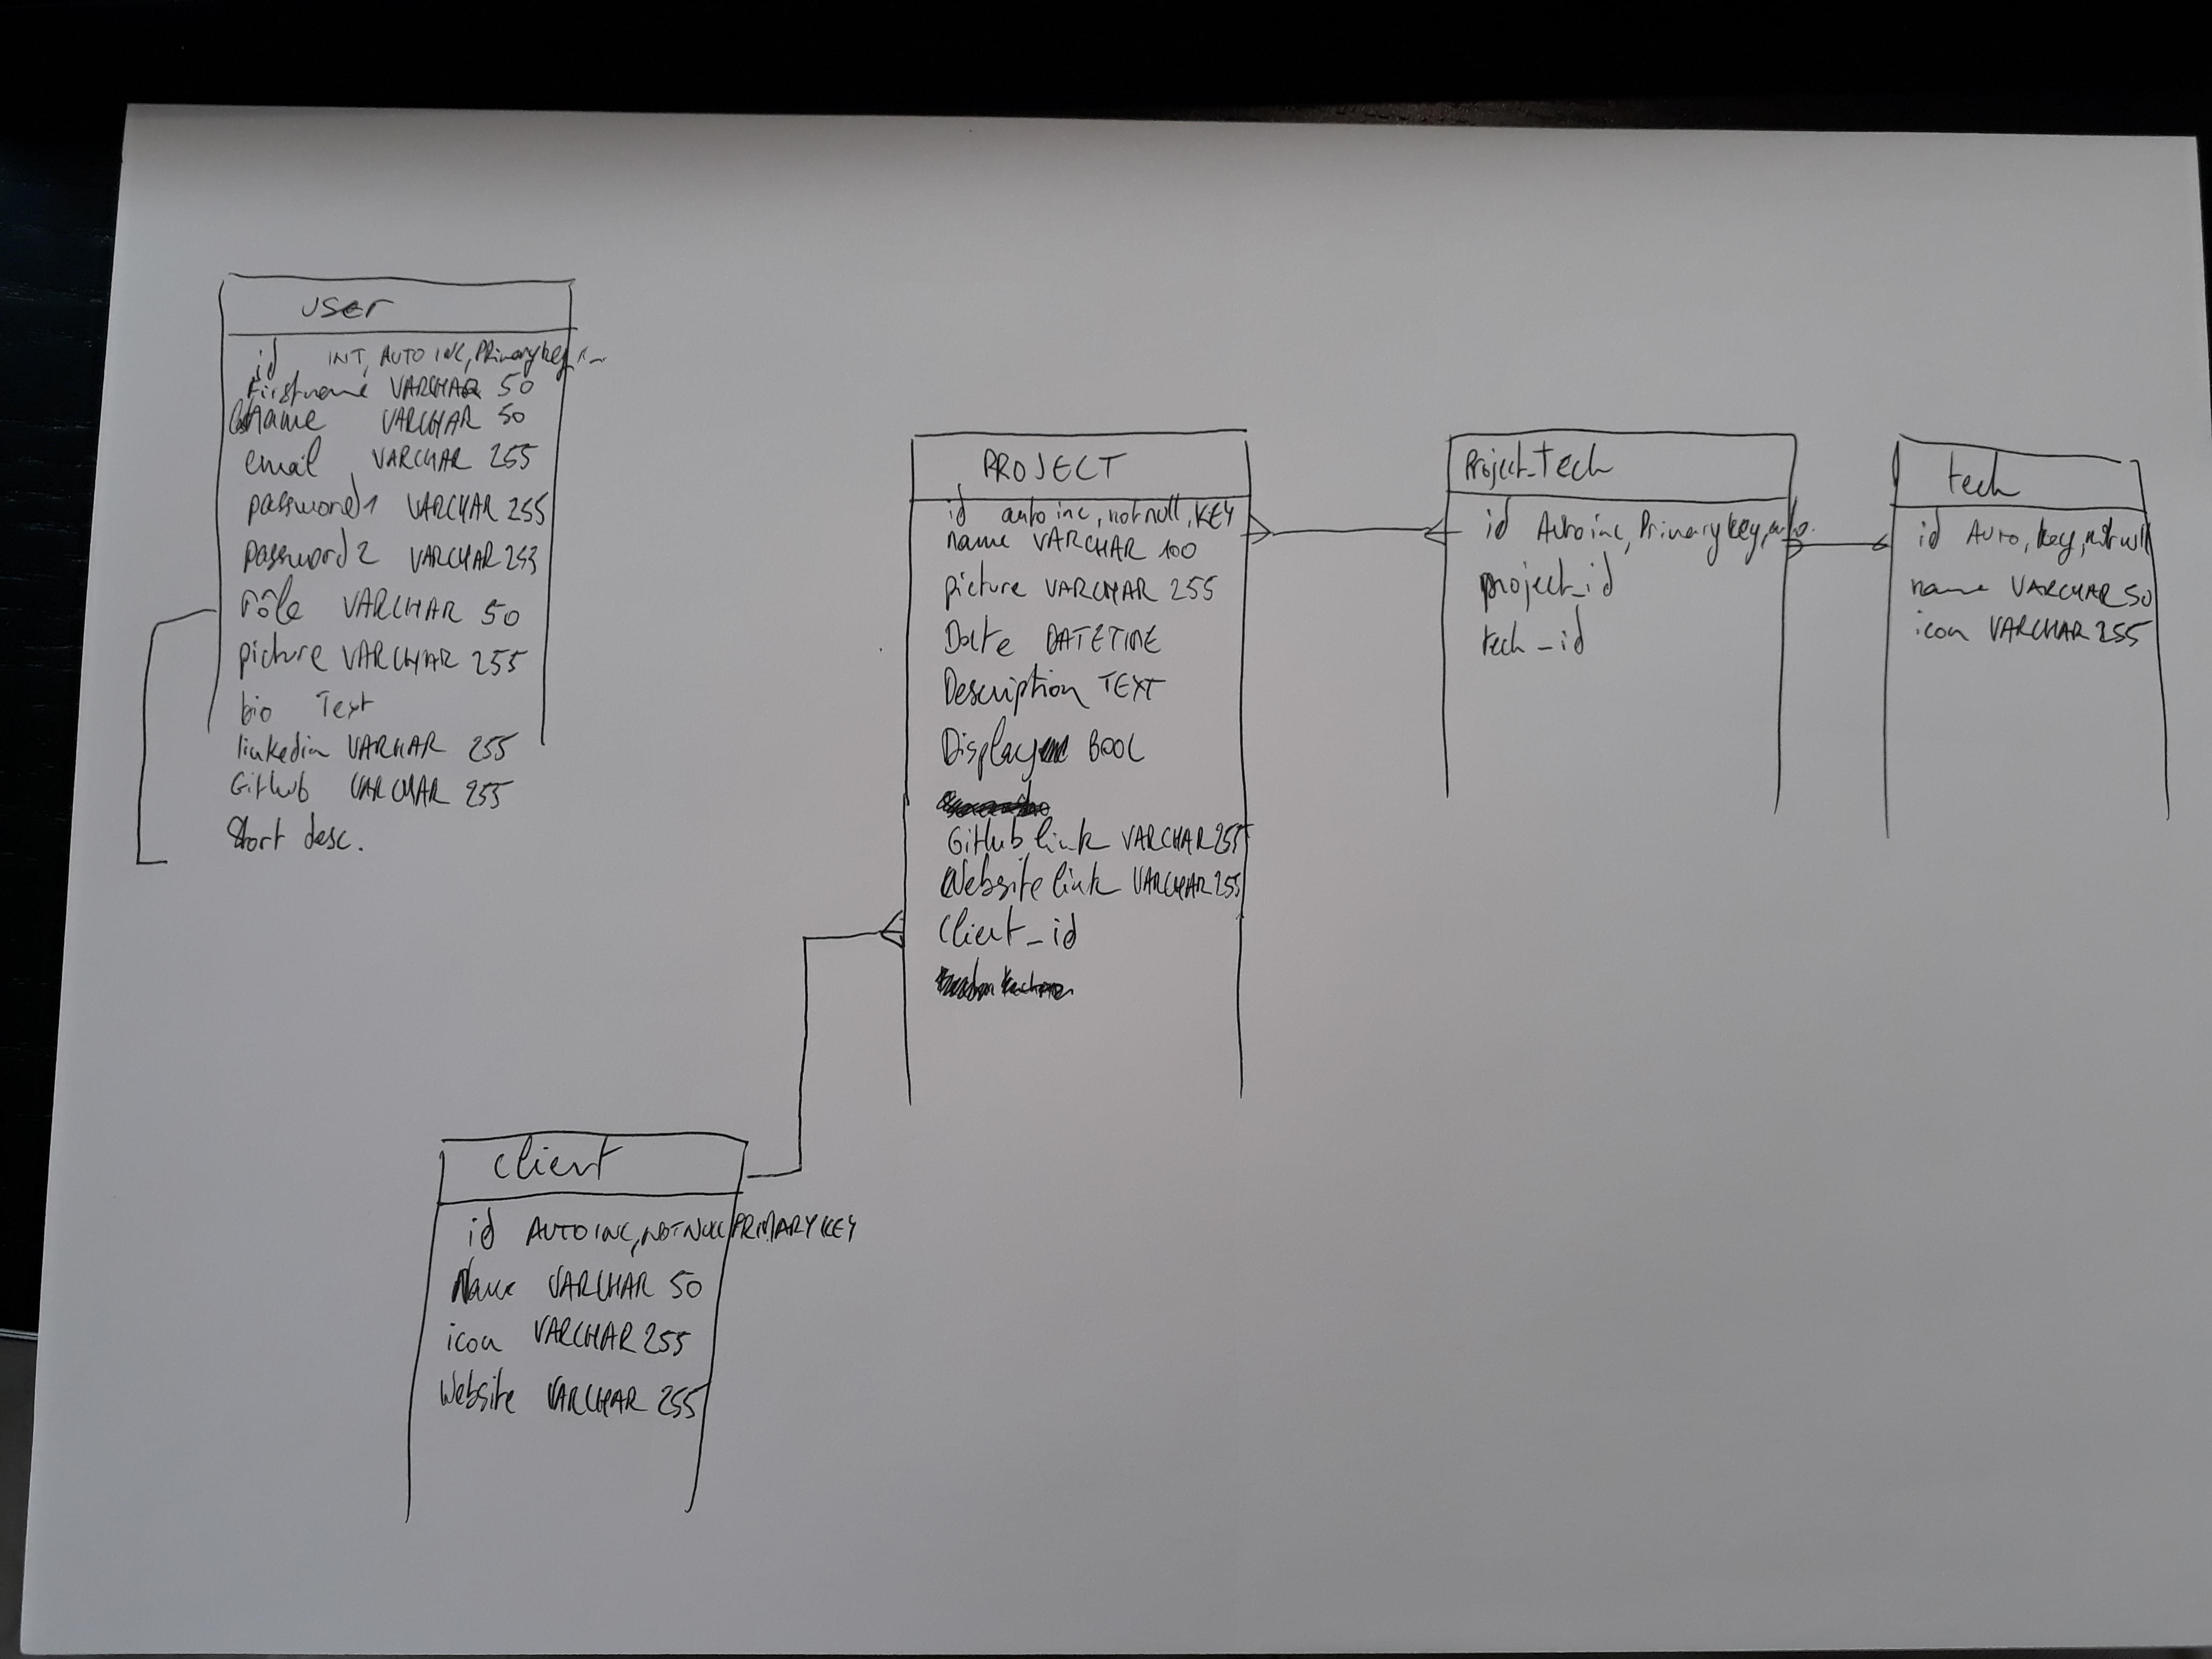 user
id INT, AUTO INC, Primary key,
Firstname VARCHAR 50
lastname VARCHAR 50
email VARCHAR 255
password1 VARCHAR 255
password2 VARCHAR 253
rôle VARCHAR 50
picture VARCHAR 255
bio Text
linkedin VARHAR 255
GitHub VARCHAR 255
Short desc.
PROJECT
id auto inc, not null, KEY
name VARCHAR 100
picture VARCHAR 255
Date DATETIME
Description TEXT
Display BOOL
GitHub link VARCHAR 255
Website link VARCHAR 255
Client_id
Project_Tech
id Auto inc, Primary key, auto.
project_id
tech_id
tech
id Auto, key, not null
name VARCHAR 50
icon VARCHAR 255
client
id AUTO INC, NOT NULL PRIMARY KEY
Name VARCHAR 50
icon VARCHAR 255
Website VARCHAR 255